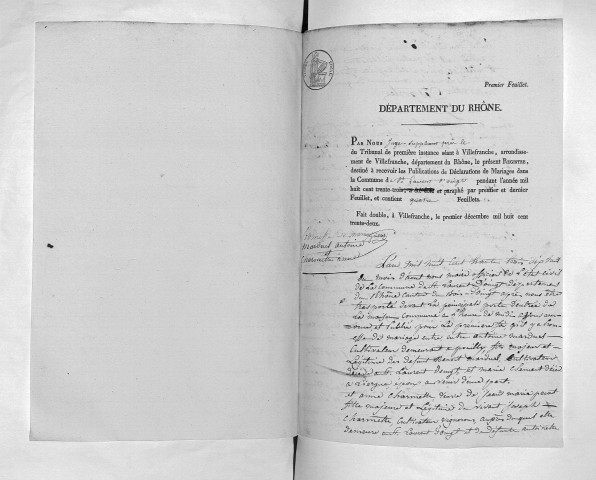 Premier Feuillet.
DÉPARTEMENT DU RHÔNE.
PAR NOUS Juge suppléant près le
du Tribunal de première instance séant à Villefranche, arrondisse-
ment de Villefranche, département du Rhône, le présent REGISTRE,
destiné à recevoir les Publications de Déclarations de Mariages dans
la Commune de St Laurent d'oingt pendant l'année mil
huit cent trente-trois, a été coté et paraphé par premier et dernier
Feuillet, et contient quatre Feuillets.
Fait double, à Villefranche, le premier décembre mil huit cent
trente-deux.
marduel antoine
et
charmette anne
L'an mil huit cent trente trois
du mois d'aout nous maire officier de l'état civil
de la commune de St Laurent Doingt département
du Rhône canton du bois Doingt après nous être
transporté devant la principale porte d'entrée de
la maison commune à heure de midi avons
et publié pour la première fois qu'il y a
de mariage entre antoine marduel
Cultivateur demeurant à fils majeur et
Légitime des défunt Benoit marduel Cultivateur
décédé à St Laurent doingt et marie décédée
à d'une part,
et anne Charmette veuve de Jean marie
fille majeure et Légitime du vivant Joseph
charmette Cultivateur vigneron auprès duquel elle
demeure à St Laurent doingt et de défunte